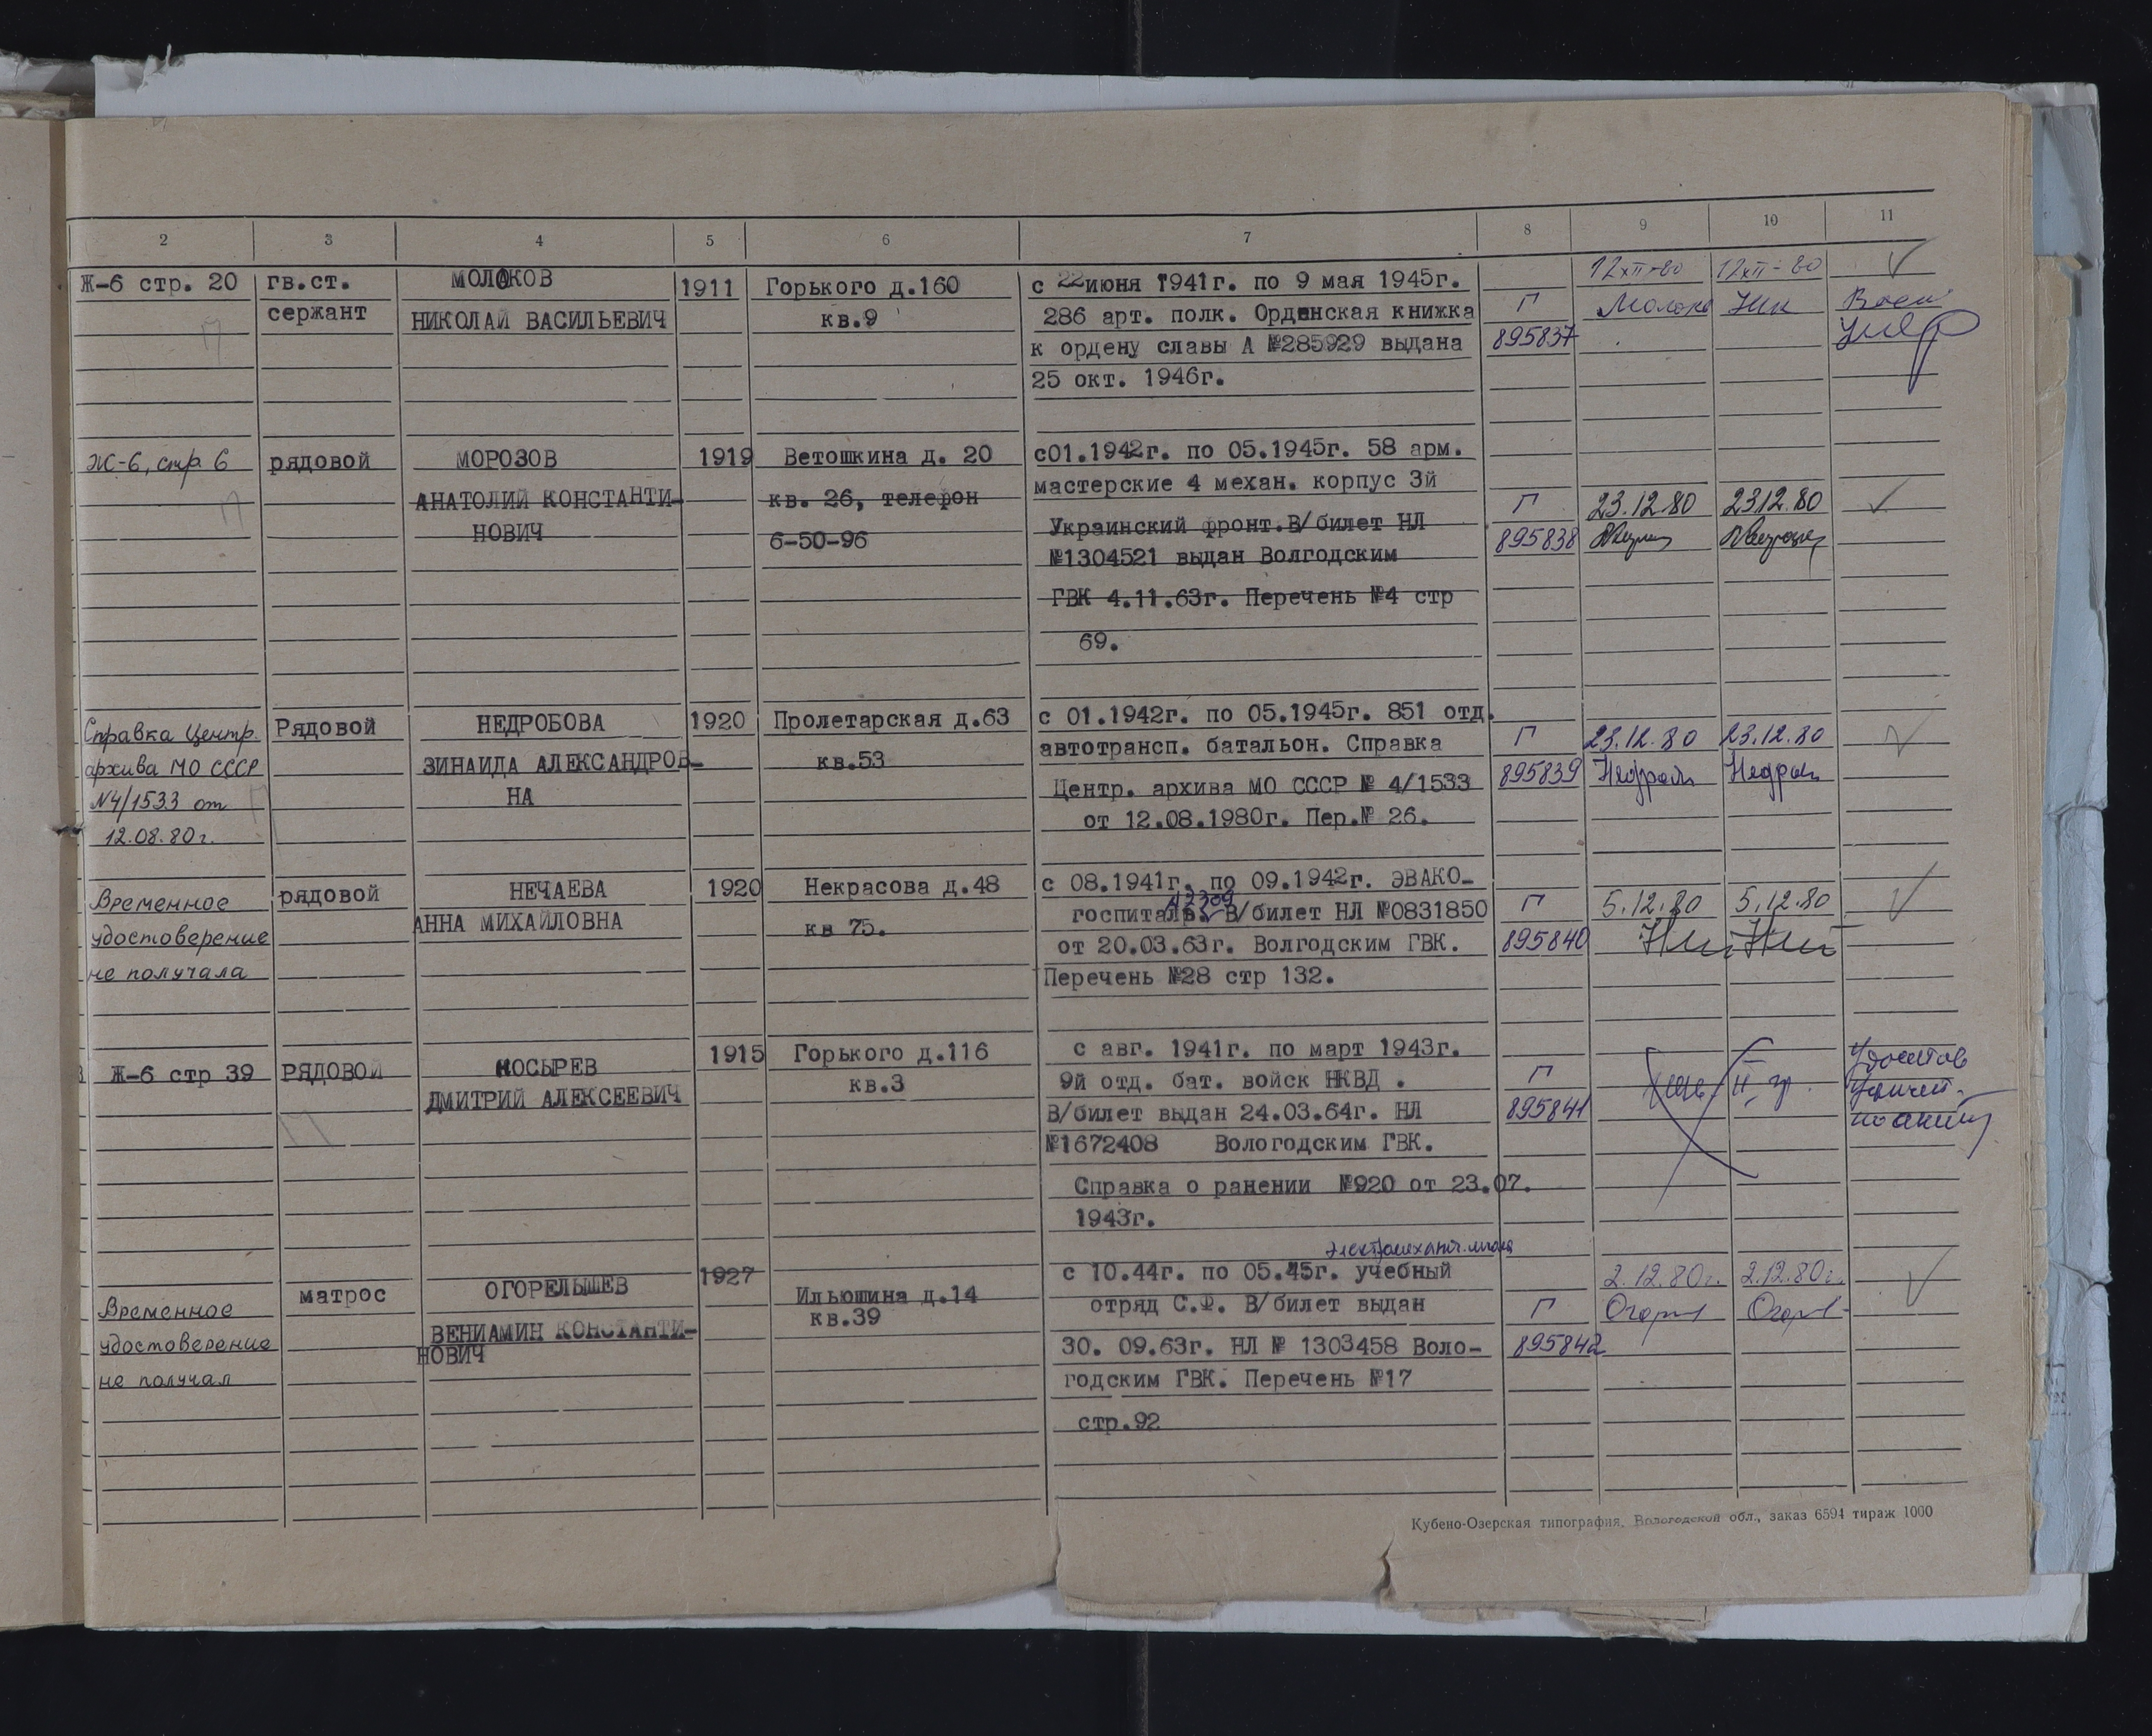 2 3 4 5 6 7 8 9 10 11
Ж-6 стр. 20
гв.ст.
сержант
МОЛОКОВ
НИКОЛАЙ ВАСИЛЬЕВИЧ
1911
Горького д.160
кв.9
с 22 июня 1941г. по 9 мая 1945г.
286 арт. полк. Орденская книжка
к ордену славы А №285929 выдана
25 окт. 1946г.
Г
895837
12 XII-80
12 XII-80
Ж-6, стр. 6
рядовой
МОРОЗОВ
АНАТОЛИЙ КОНСТАНТИ-
НОВИЧ
1919
Ветошкина д. 20
кв. 26, телефон
6-50-96
с01.1942г. по 05.1945г. 58 арм.
мастерские 4 механ. корпус 3й
Украинский фронт.В/билет НЛ
№1304521 выдан Волгодским
ГВК 4.11.63г. Перечень №4 стр
69.
Г
895838
23.12.80
23.12.80
Справка Центр.
архива МО СССР
N4/1533 от
12.08.80г.
Рядовой
НЕДРОБОВА
ЗИНАИДА АЛЕКСАНДРОВ-
НА
1920
Пролетарская д.63
кв.53
с 01.1942г. по 05.1945г. 851 отд.
автотрансп. батальон. Справка
Центр. архива МО СССР № 4/1533
от 12.08.1980г. Пер.№ 26.
Г
895839
23.12.80
23.12.80
Временное
удостоверение
не получала
рядовой
НЕЧАЕВА
АННА МИХАЙЛОВНА
1920
Некрасова д.48
кв 75.
с 08.1941г. по 09.1942г. ЭВАКО-
госпиталь. В/билет НЛ №0831850
от 20.03.63г. Волгодским ГВК.
Перечень №28 стр 132.
Г
895840
5.12.80
5.12.80
Ж-6 стр 39
РЯДОВОЙ
НОСЫРЕВ
ДМИТРИЙ АЛЕКСЕЕВИЧ
1915
Горького д.116
кв.3
с авг. 1941г. по март 1943г.
9й отд. бат. войск НКВД .
В/билет выдан 24.03.64г. НЛ
№1672408 Вологодским ГВК.
Справка о ранении №920 от 23.07.
1943г.
Г
895841
Временное
удостоверение
не получал
матрос
ОГОРЕЛЫШЕВ
ВЕНИАМИН КОНСТАНТИ-
НОВИЧ
1927
Ильюшина д.14
кв.39
с 10.44г. по 05.45г. учебный
отряд С.Ф. В/билет выдан
30. 09.63г. НЛ № 1303458 Воло-
годским ГВК. Перечень №17
стр.92
Г
895842
2.12.80г.
2.12.80г.
Кубено-Озерская типография, Вологодской обл., заказ 6594 тираж 1000